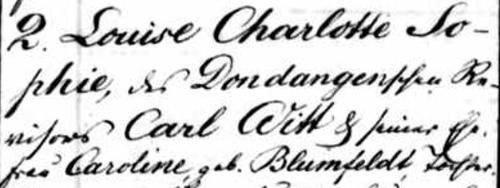 2. Louise Charlotte So-
phie, des Dondangenschen Re-
visors Carl Witt & seiner Ehe-
frau Caroline, geb. Blumfeldt Tochter